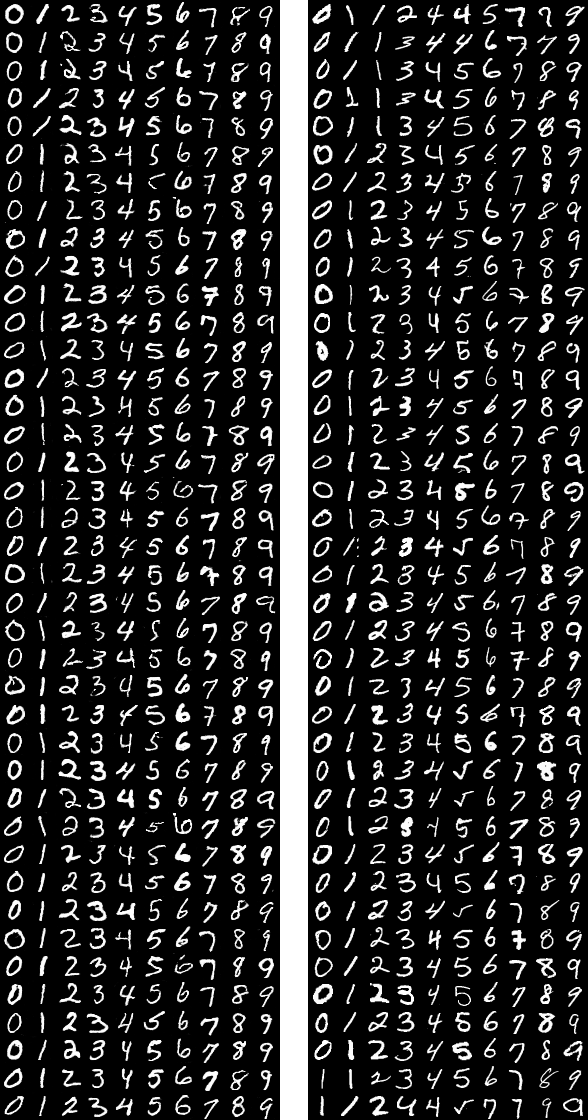 0 1 2 3 4 5 6 7 8 9
0 1 2 3 4 5 6 7 8 9
0 1 2 3 4 5 6 7 8 9
0 1 2 3 4 5 6 7 8 9
0 1 2 3 4 5 6 7 8 9
0 1 2 3 4 5 6 7 8 9
0 1 2 3 4 5 6 7 8 9
0 1 2 3 4 5 6 7 8 9
0 1 2 3 4 5 6 7 8 9
0 1 2 3 4 5 6 7 8 9
0 1 2 3 4 5 6 7 8 9
0 1 2 3 4 5 6 7 8 9
0 1 2 3 4 5 6 7 8 9
0 1 2 3 4 5 6 7 8 9
0 1 2 3 4 5 6 7 8 9
0 1 2 3 4 5 6 7 8 9
0 1 2 3 4 5 6 7 8 9
0 1 2 3 4 5 6 7 8 9
0 1 2 3 4 5 6 7 8 9
0 1 2 3 4 5 6 7 8 9
0 1 2 3 4 5 6 7 8 9
0 1 2 3 4 5 6 7 8 9
0 1 2 3 4 5 6 7 8 9
0 1 2 3 4 5 6 7 8 9
0 1 2 3 4 5 6 7 8 9
0 1 2 3 4 5 6 7 8 9
0 1 2 3 4 5 6 7 8 9
0 1 2 3 4 5 6 7 8 9
0 1 2 3 4 5 6 7 8 9
0 1 2 3 4 5 6 7 8 9
0 1 2 3 4 5 6 7 8 9
0 1 2 3 4 5 6 7 8 9
0 1 2 3 4 5 6 7 8 9
0 1 2 3 4 5 6 7 8 9
0 1 2 3 4 5 6 7 8 9
0 1 2 3 4 5 6 7 8 9
0 1 2 3 4 5 6 7 8 9
0 1 2 3 4 5 6 7 8 9
0 1 2 3 4 5 6 7 8 9
0 1 2 3 4 5 6 7 8 9
0 1 1 2 4 4 5 7 7 9
0 1 1 3 4 4 6 7 7 9
0 1 1 3 4 5 6 7 8 9
0 1 1 3 4 5 6 7 8 9
0 1 1 3 4 5 6 7 8 9
0 1 2 3 4 5 6 7 8 9
0 1 2 3 4 5 6 7 8 9
0 1 2 3 4 5 6 7 8 9
0 1 2 3 4 5 6 7 8 9
0 1 2 3 4 5 6 7 8 9
0 1 2 3 4 5 6 7 8 9
0 1 2 3 4 5 6 7 8 9
0 1 2 3 4 5 6 7 8 9
0 1 2 3 4 5 6 7 8 9
0 1 2 3 4 5 6 7 8 9
0 1 2 3 4 5 6 7 8 9
0 1 2 3 4 5 6 7 8 9
0 1 2 3 4 5 6 7 8 9
0 1 2 3 4 5 6 7 8 9
0 1 2 3 4 5 6 7 8 9
0 1 2 8 4 5 6 7 8 9
0 1 2 3 4 5 6 7 8 9
0 1 2 3 4 5 6 7 8 9
0 1 2 3 4 5 6 7 8 9
0 1 2 3 4 5 6 7 8 9
0 1 2 3 4 5 6 7 8 9
0 1 2 3 4 5 6 7 8 9
0 1 2 3 4 5 6 7 8 9
0 1 2 3 4 5 6 7 8 9
0 1 2 8 4 5 6 7 8 9
0 1 2 3 4 5 6 7 8 9
0 1 2 3 4 5 6 7 8 9
0 1 2 3 4 5 6 7 8 9
0 1 2 3 4 5 6 7 8 9
0 1 2 3 4 5 6 7 8 9
0 1 2 3 4 5 6 7 8 9
0 1 2 3 4 5 6 7 8 9
0 1 2 3 4 5 6 7 8 9
1 1 2 3 4 5 6 7 8 9
1 1 2 4 4 5 7 7 9 0